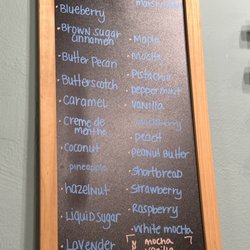 · Blueberry
· Brown sugar
cinnamon
· Butter Pecan
· Butterscotch
· Caramel
· Creme de
menthe
· Coconut
· pineapple
· hazelnut
· Liquid Sugar
· Lavender
· Maple
· Mocha
· Pistachio
· peppermint
· vanilla
· Peanut Butter
· Shortbread
· Strawberry
· Raspberry
· White mocha
mocha
vanilla